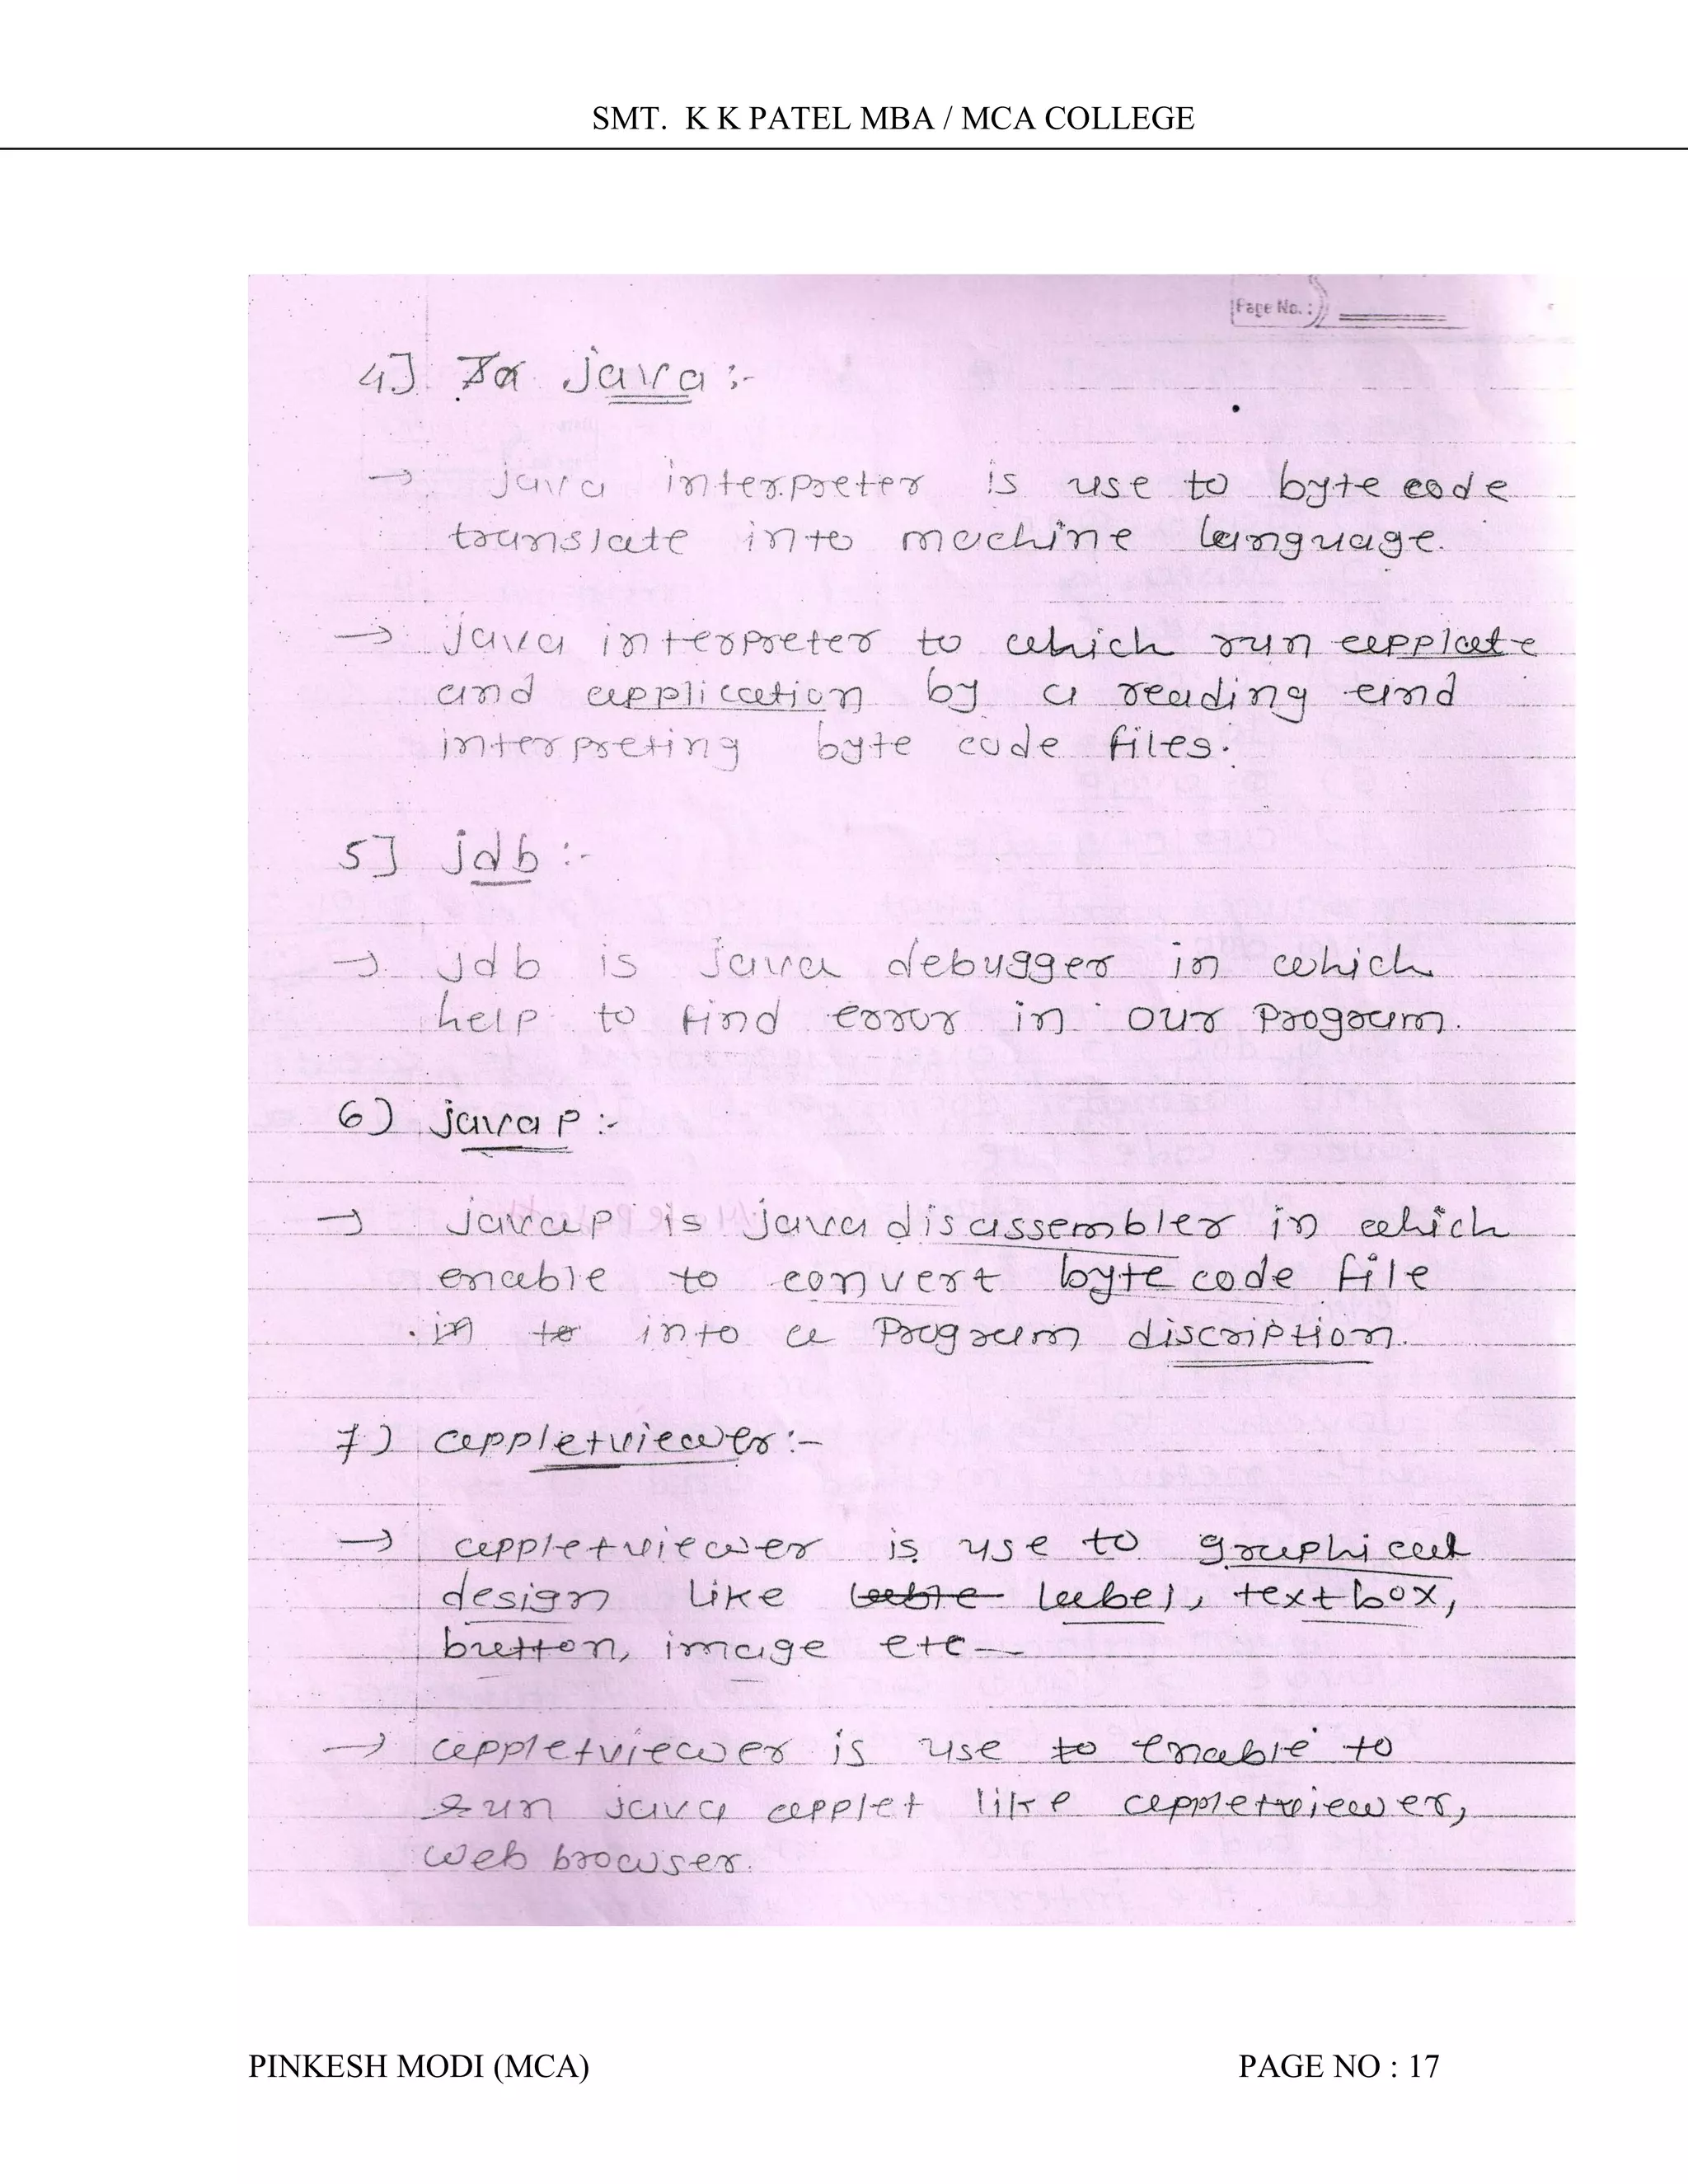 SMT. K K PATEL MBA / MCA COLLEGE
Page No. :
4] java :-
→ java interpreter is use to byte code
translate into machine language.
→ java interpreter to which run applate
and application by a reading and
interpreting byte code files.
5] jdb :-
→ jdb is java debugger in which
help to find error in our Program.
6) javap :-
→ javap is java disassembler in which
enable to convert byte code file
in to into a Program discription.
7) appletviewer :-
→ appletviewer is use to graphical
design like lable label, textbox,
button, image etc
→ appletviewer is use to enable to
run java applet like appletviewer,
web browser.
PINKESH MODI (MCA) PAGE NO : 17